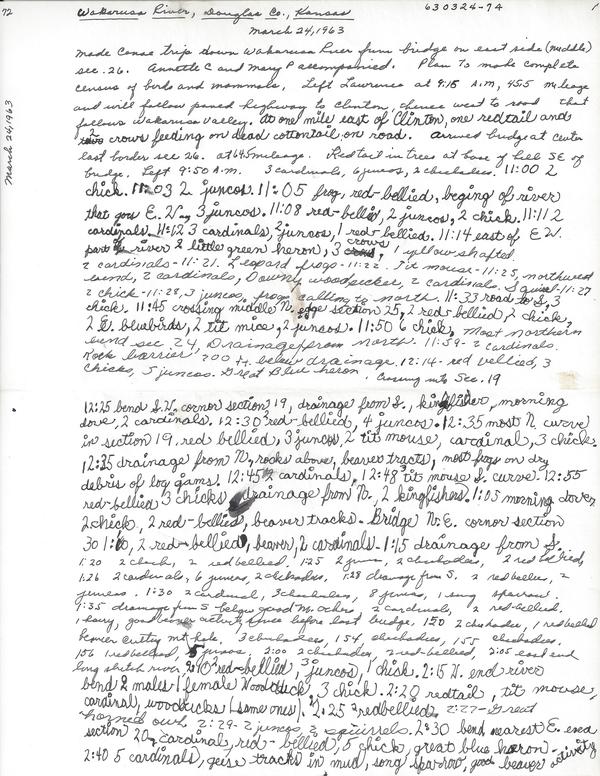 72
Wakarusa River, Douglas Co., Kansas
630324-74
1
March 24, 1963
March 24, 1963
made canoe trip down Wakarusa River from bridge on east side (middle)
sec. 26. Annette C and Mary P accompanied. Plan to made complete
census of birds and mammals. Left Lawrence at 9:15 A.M, 455 mileage
and will follow paved highway to Clinton, thence west to road that
follows Wakarusa Valley. At one mile east of Clinton, one redtail and
2 crows feeding on dead cottontail on road. Arrived bridge at center
east border sec 26. at 645 mileage. Redtail in trees at base of hill SE of
bridge. Left 9:50 A.M. 3 cardinals, 6 juncos, 2 chickadees. 11:00 2
chick. 11:03 2 juncos. 11:05 frog, red-bellied, beging of river
that goes E. W., 3 juncos. 11:08 red-bellied, 2 juncos, 2 chick. 11:11 2
cardinals. 11:12 3 cardinals, 2 juncos, 1 red-bellied. 11:14 east of E W.
part river 2 little green heron, 3 crows, 1 yellow-shafted.
2 cardinals-11:21. Leopard frogs-11:22. Tit mouse-11:25, northwest
bend, 2 cardinals, Downy woodpecker, 2 cardinals. Squirrel-11:27
2 chick-11:28, 3 juncos, frog calling to north. 11:33 road to S, 3
chick. 11:45 crossing middle N. edge section 25, 2 red-bellied, 2 chick,
2 E. bluebirds, 2 tit mice, 2 juncos. 11:50 6 chick, Most northern
bend sec. 24, Drainage from north. 11:59-2 cardinals.
Rock barrier 200 ft. below drainage. 12:14-red bellied, 3
chicks, 5 juncos. Great Blue heron. Crossing into Sec. 19
12:25 bend S.W. cornor section 19, drainage from S., kingfisher, morning
dove, 2 cardinals. 12:30 red-bellied, 4 juncos. 12:35 most N. curve
in section 19. red bellied, 3 juncos, 2 tit mouse, cardinal, 3 chick.
12:35 drainage from N., rocks above, beaver tracts, most frogs on dry
debris of log gams. 12:45 cardinals. 12:48 tit mouse S. curve. 12:55
red-bellied 3 chicks drainage from N., 2 kingfishers. 1:05 morning dover
2 chick, 2 red-bellied, beaver tracks. Bridge N.E. cornor section
30 1:10, 2 red-bellied, beaver, 2 cardinals. 1:15 drainage from S.
1:20 2 chick, 2 red bellied. 1:25 2 juncos, 2 chickadees, 2 red bellied,
1:26 2 cardinals, 6 juncos, 2 chickadees, 1:28 drainage from S. 2 red bellies, 2
juncos. 1:30 2 cardinal, 3 chickadees, 8 juncos, 1 song sparrow.
1:35 drainage from S 2 cardinals, 2 red-bellied.
1 beaver activity since before last bridge. 150 2 chickadees, 1 redbellied
beaver cutting 3 chickadees, 154 chickadees, 155 chickadees.
156 1 redbellied, 5 juncos, 2:00 2 chickadees, 2 red-bellied, 2:05 east end
long river. 2:10 red-bellied, 3 juncos, 1 chick. 2:15 N. end river
bend 2 males 1 female Woodduck, 3 chick. 2:20 redtail, tit mouse,
cardinal, woodducks (same ones). 2:25 redbellied. 2:27-Great
horned owl. 2:29-2 juncos, 2 squirrels. 2:30 bend nearest E. end
section 20, cardinal, red-bellied, 5 chick, great blue heron.
2:40 5 cardinals, geese tracks in mud, song sparrow, good beaver activity